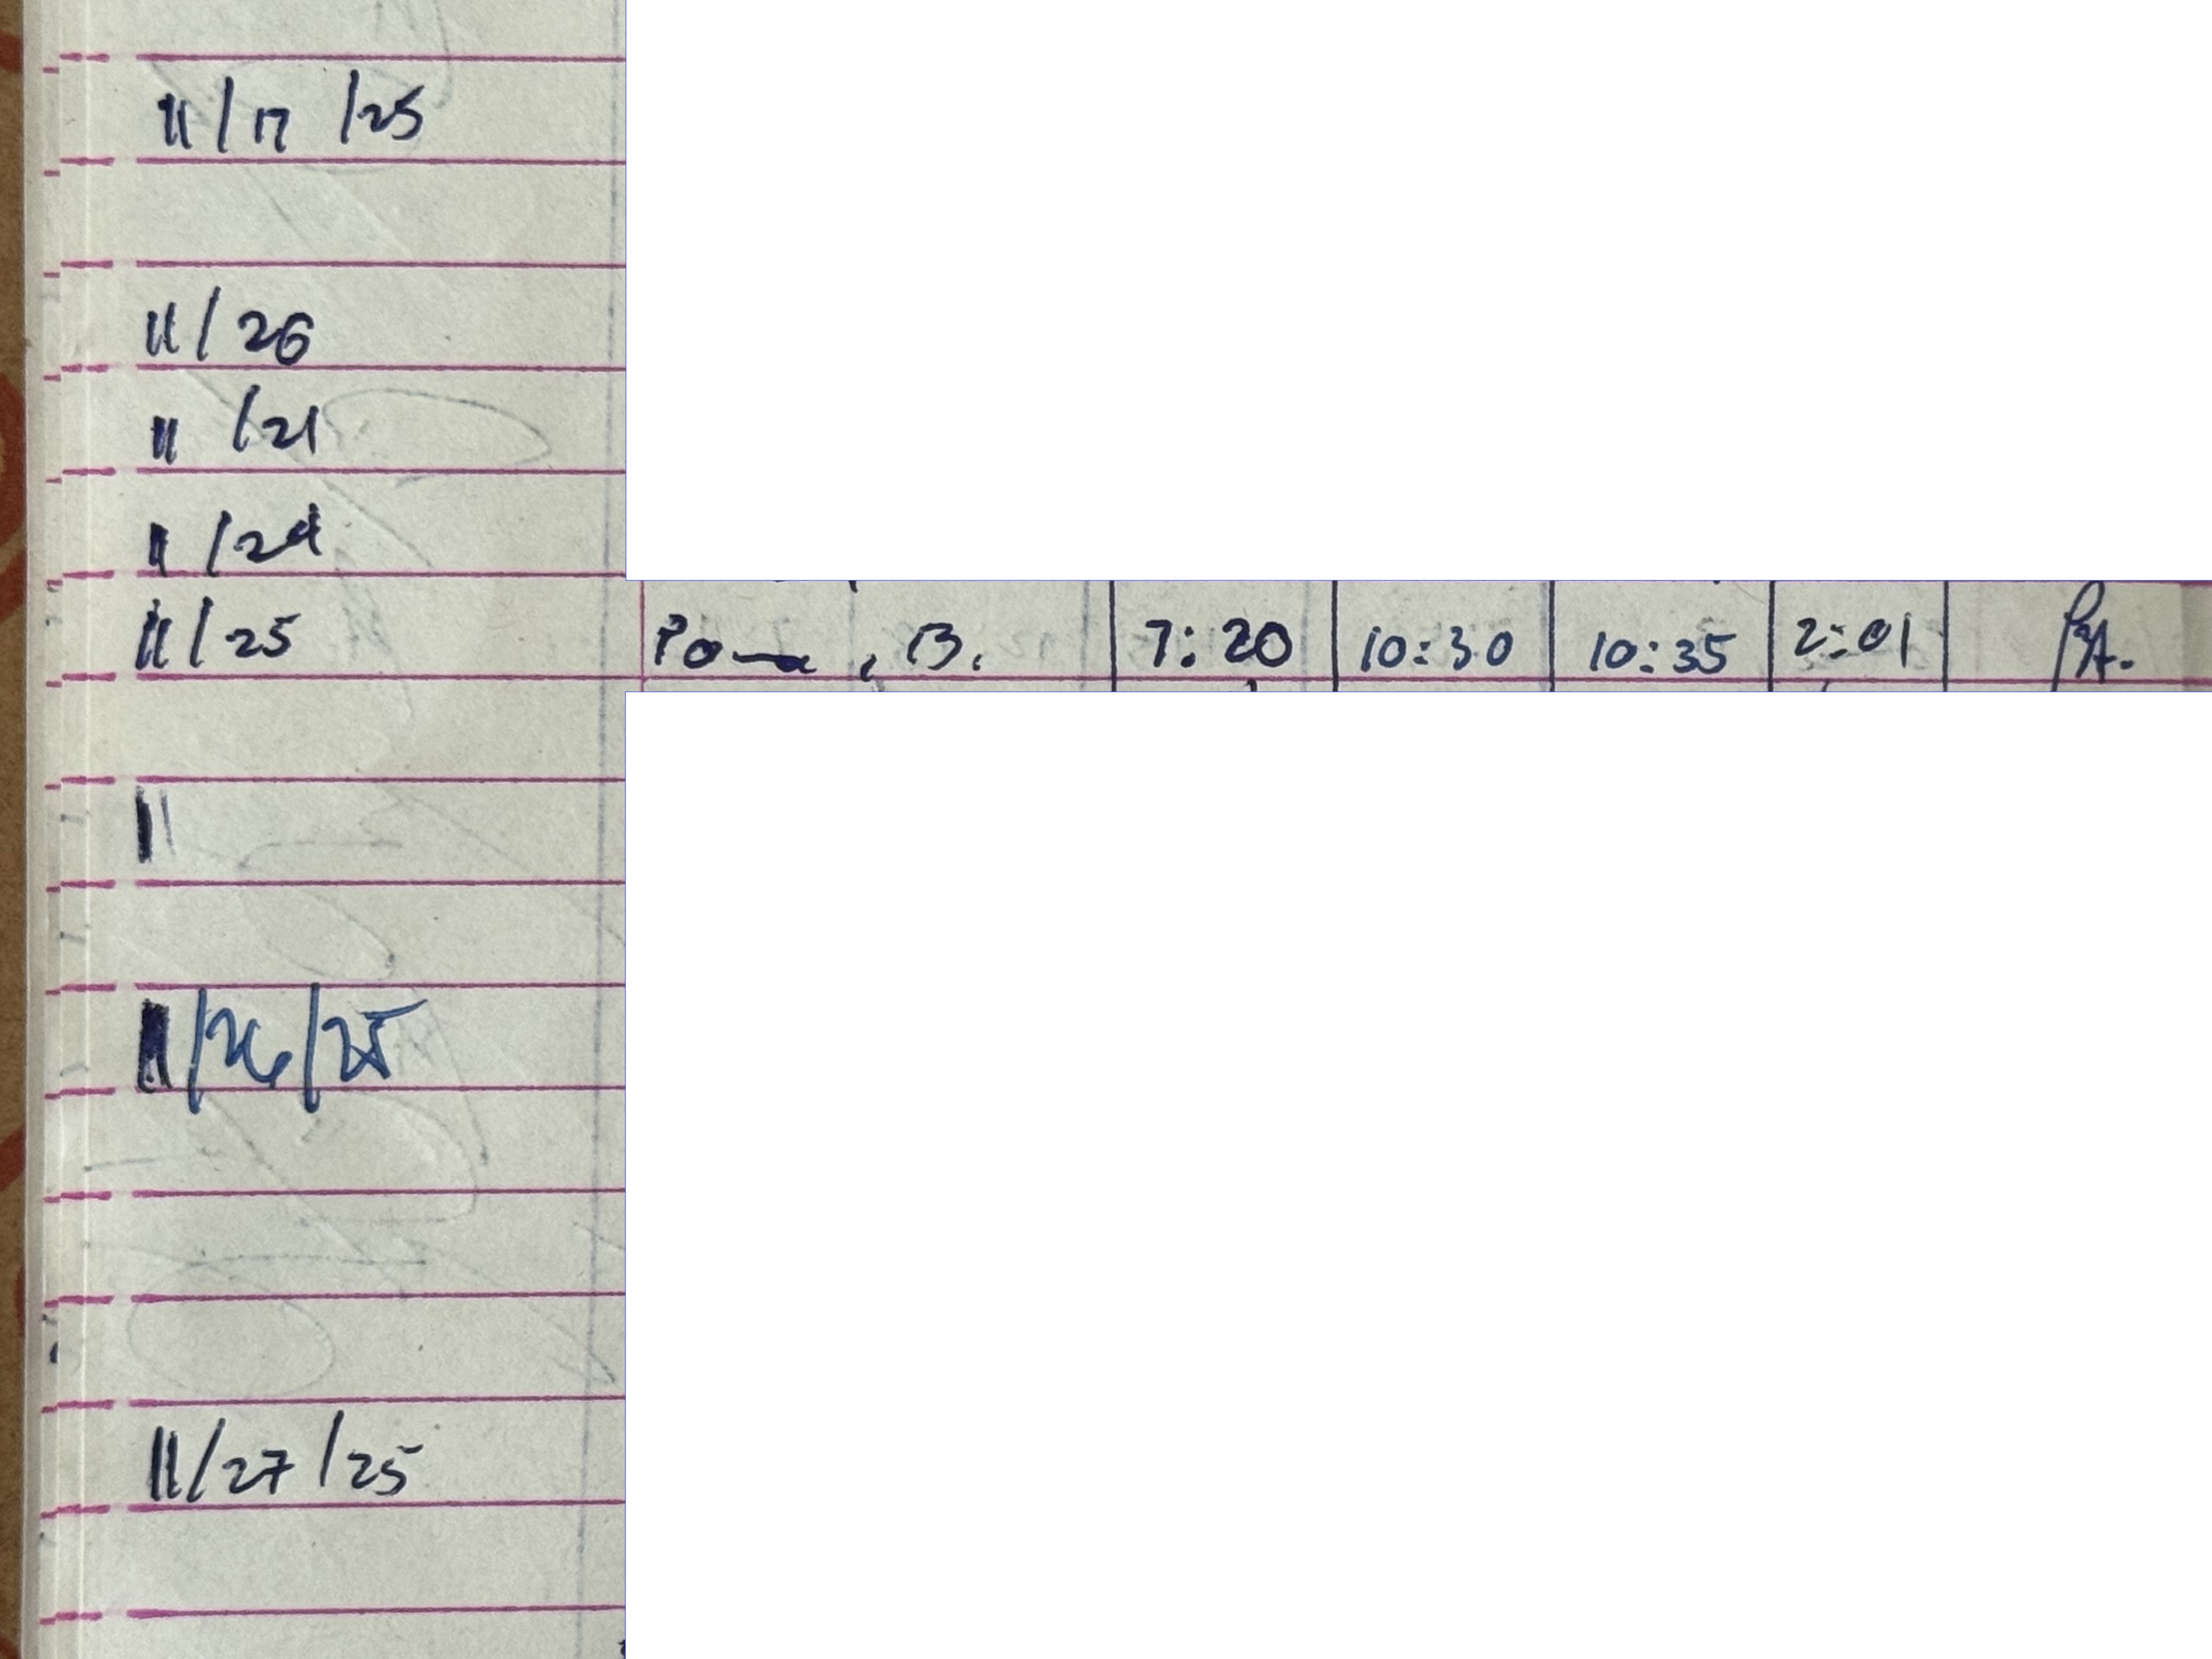 11/17/25
11/26
11/21
11/24
11/25 , B. 7:20 10:30 10:35 2:01
11
11/26/25
11/27/25